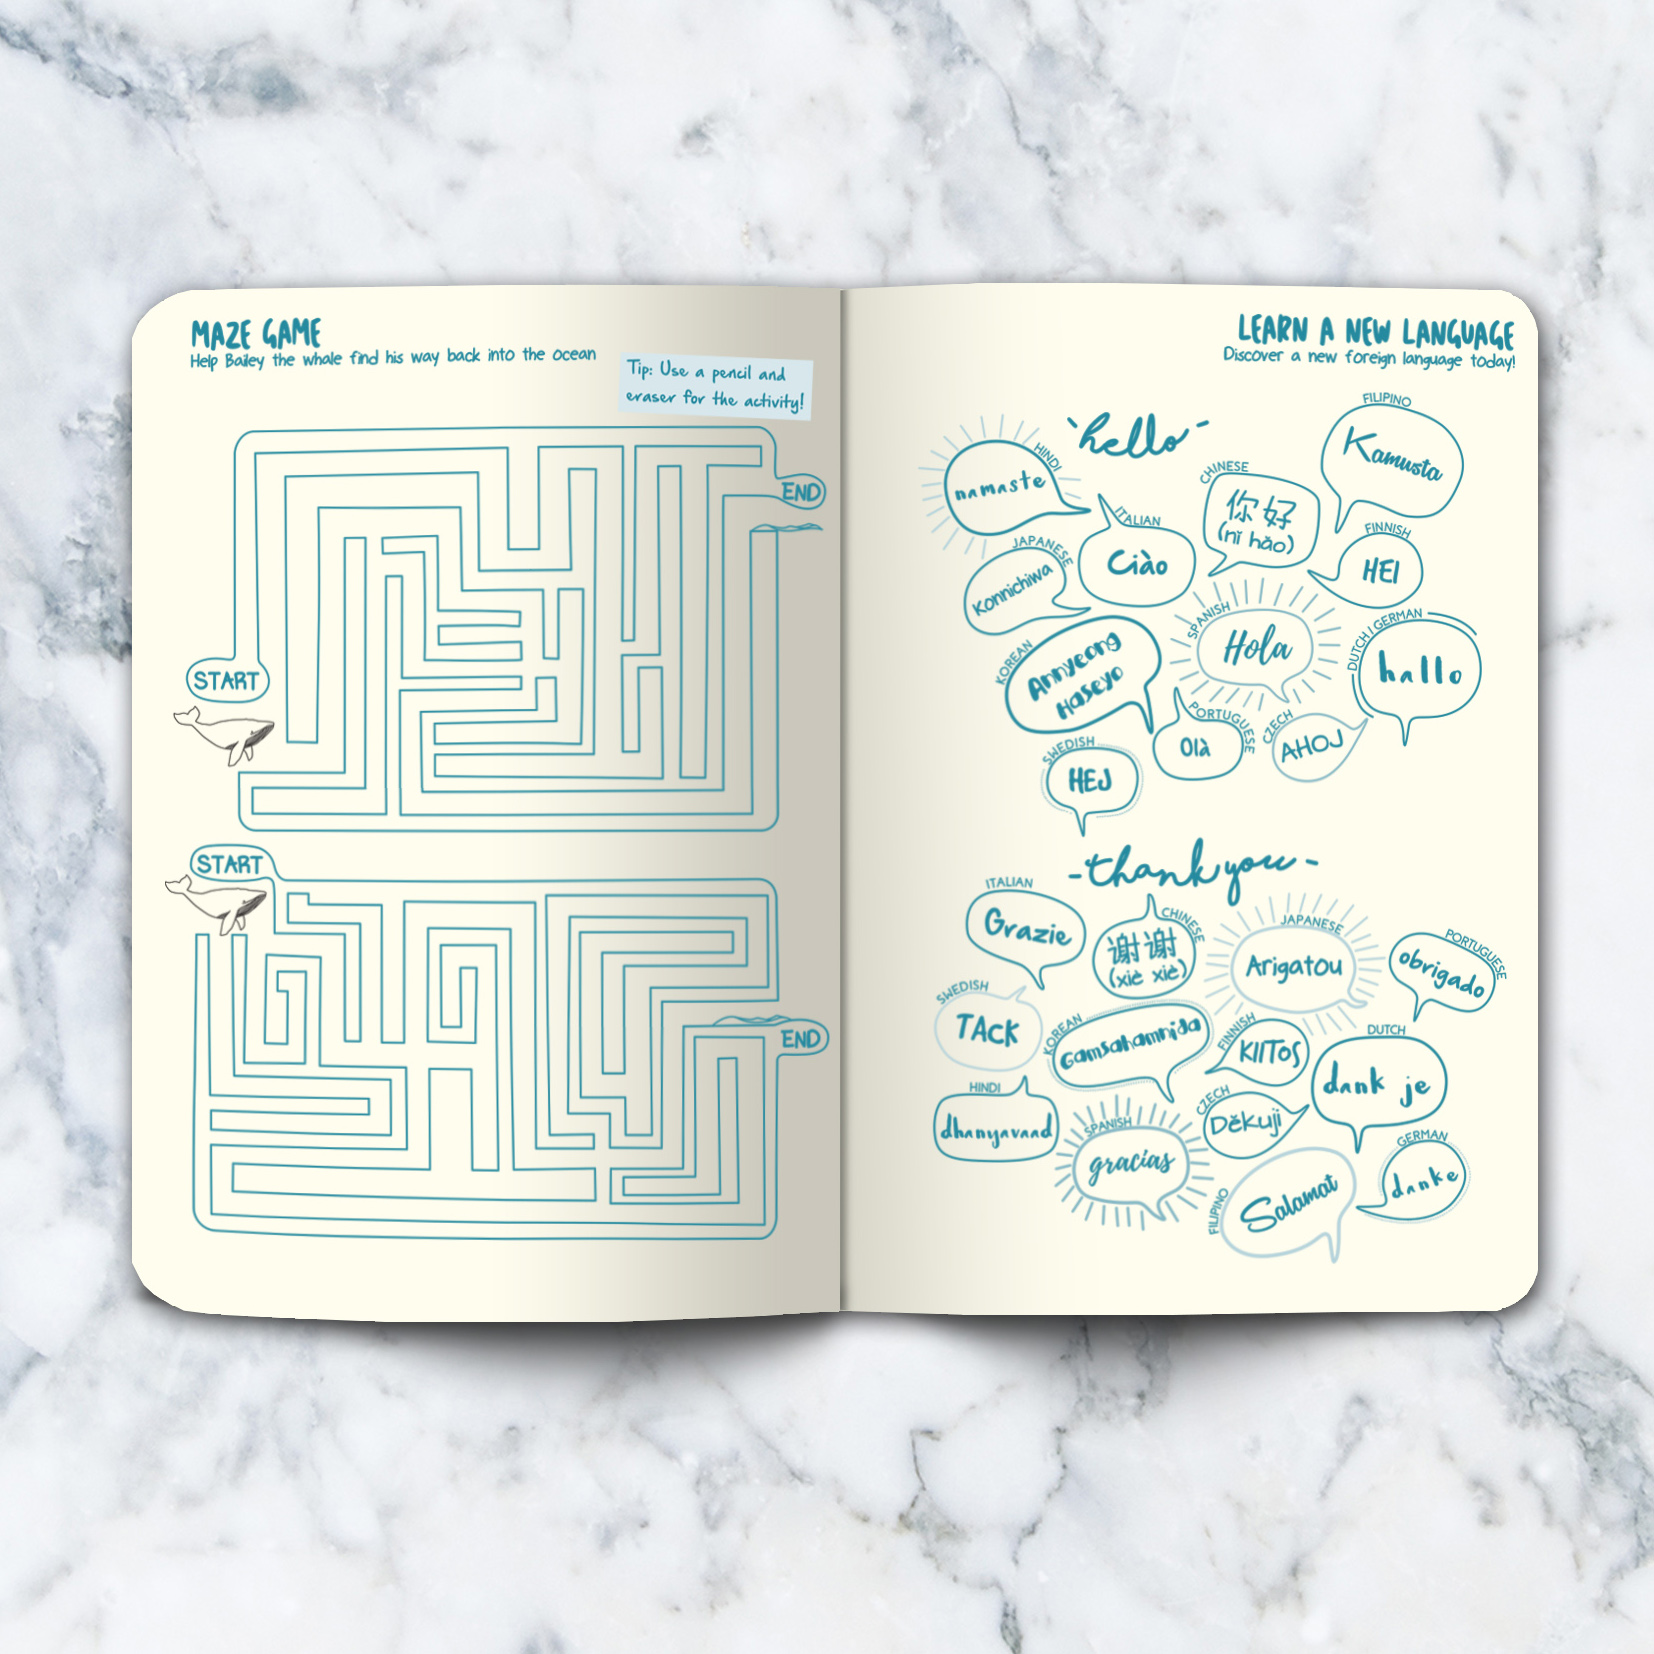 MAZE GAME
Help Bailey the whale find his way back into the ocean
Tip: Use a pencil and
eraser for the activity!
END
START
START
END
LEARN A NEW LANGUAGE
Discover a new foreign language today!
hello
FILIPINO
Kamusta
HINDI
namaste
CHINESE
你好
(nǐ hǎo)
ITALIAN
Ciào
FINNISH
HEI
JAPANESE
Konnichiwa
SPANISH
Hola
DUTCH | GERMAN
hallo
KOREAN
Annyeong
Haseyo
PORTUGUESE
Olà
CZECH
AHOJ
SWEDISH
HEJ
-thank you-
ITALIAN
Grazie
CHINESE
谢谢
(xiè xiè)
JAPANESE
Arigatou
PORTUGUESE
obrigado
SWEDISH
TACK
KOREAN
Gamsahamnida
FINNISH
KIITOS
DUTCH
dank je
HINDI
dhanyavaad
SPANISH
gracias
CZECH
Děkuji
GERMAN
danke
FILIPINO
Salamat